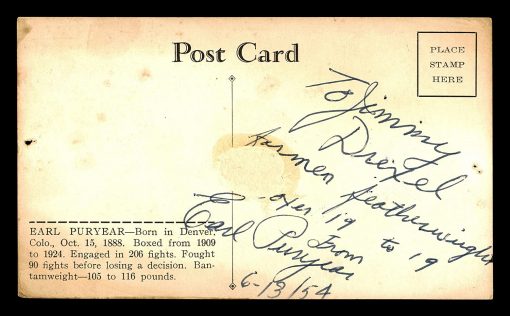 Post Card
PLACE
STAMP
HERE
To Jimmy
Drexel
former featherweight
19 to 19
From
Earl Puryear
6-13/54
EARL PURYEAR—Born in Denver,
Colo., Oct. 15, 1888. Boxed from 1909
to 1924. Engaged in 206 fights. Fought
90 fights before losing a decision. Ban-
tamweight—105 to 116 pounds.